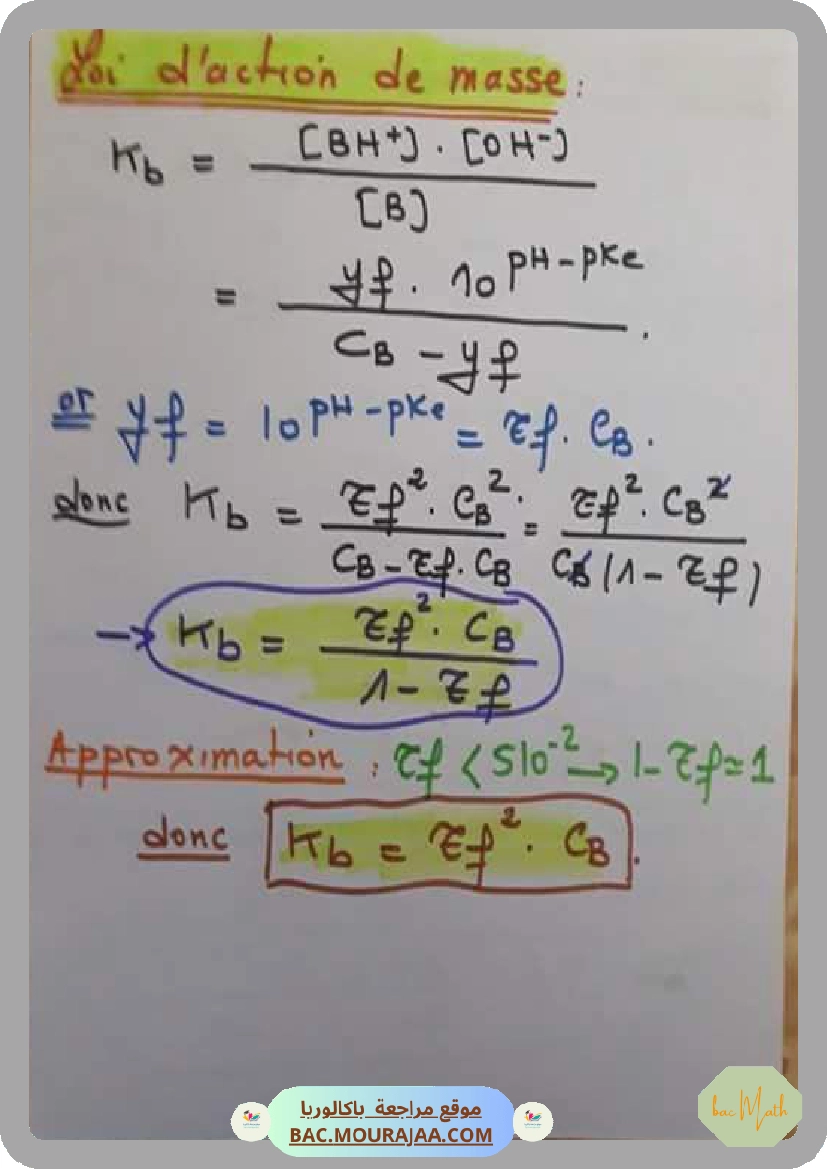 Loi d'action de masse :
Kb = [BH+] . [OH-] / [B]
= yf . 10^(pH-pKe) / (CB - yf) .
or yf = 10^(pH-pKe) = τf . CB .
donc Kb = τf² . CB² . / (CB - τf . CB) = τf² . CB² / (CB (1 - τf))
→ Kb = τf² . CB / (1 - τf)
Approximation : τf < 510^-2 → 1 - τf ≃ 1
donc Kb = τf² . CB .
موقع مراجعة باكالوريا
BAC.MOURAJAA.COM
bac Math